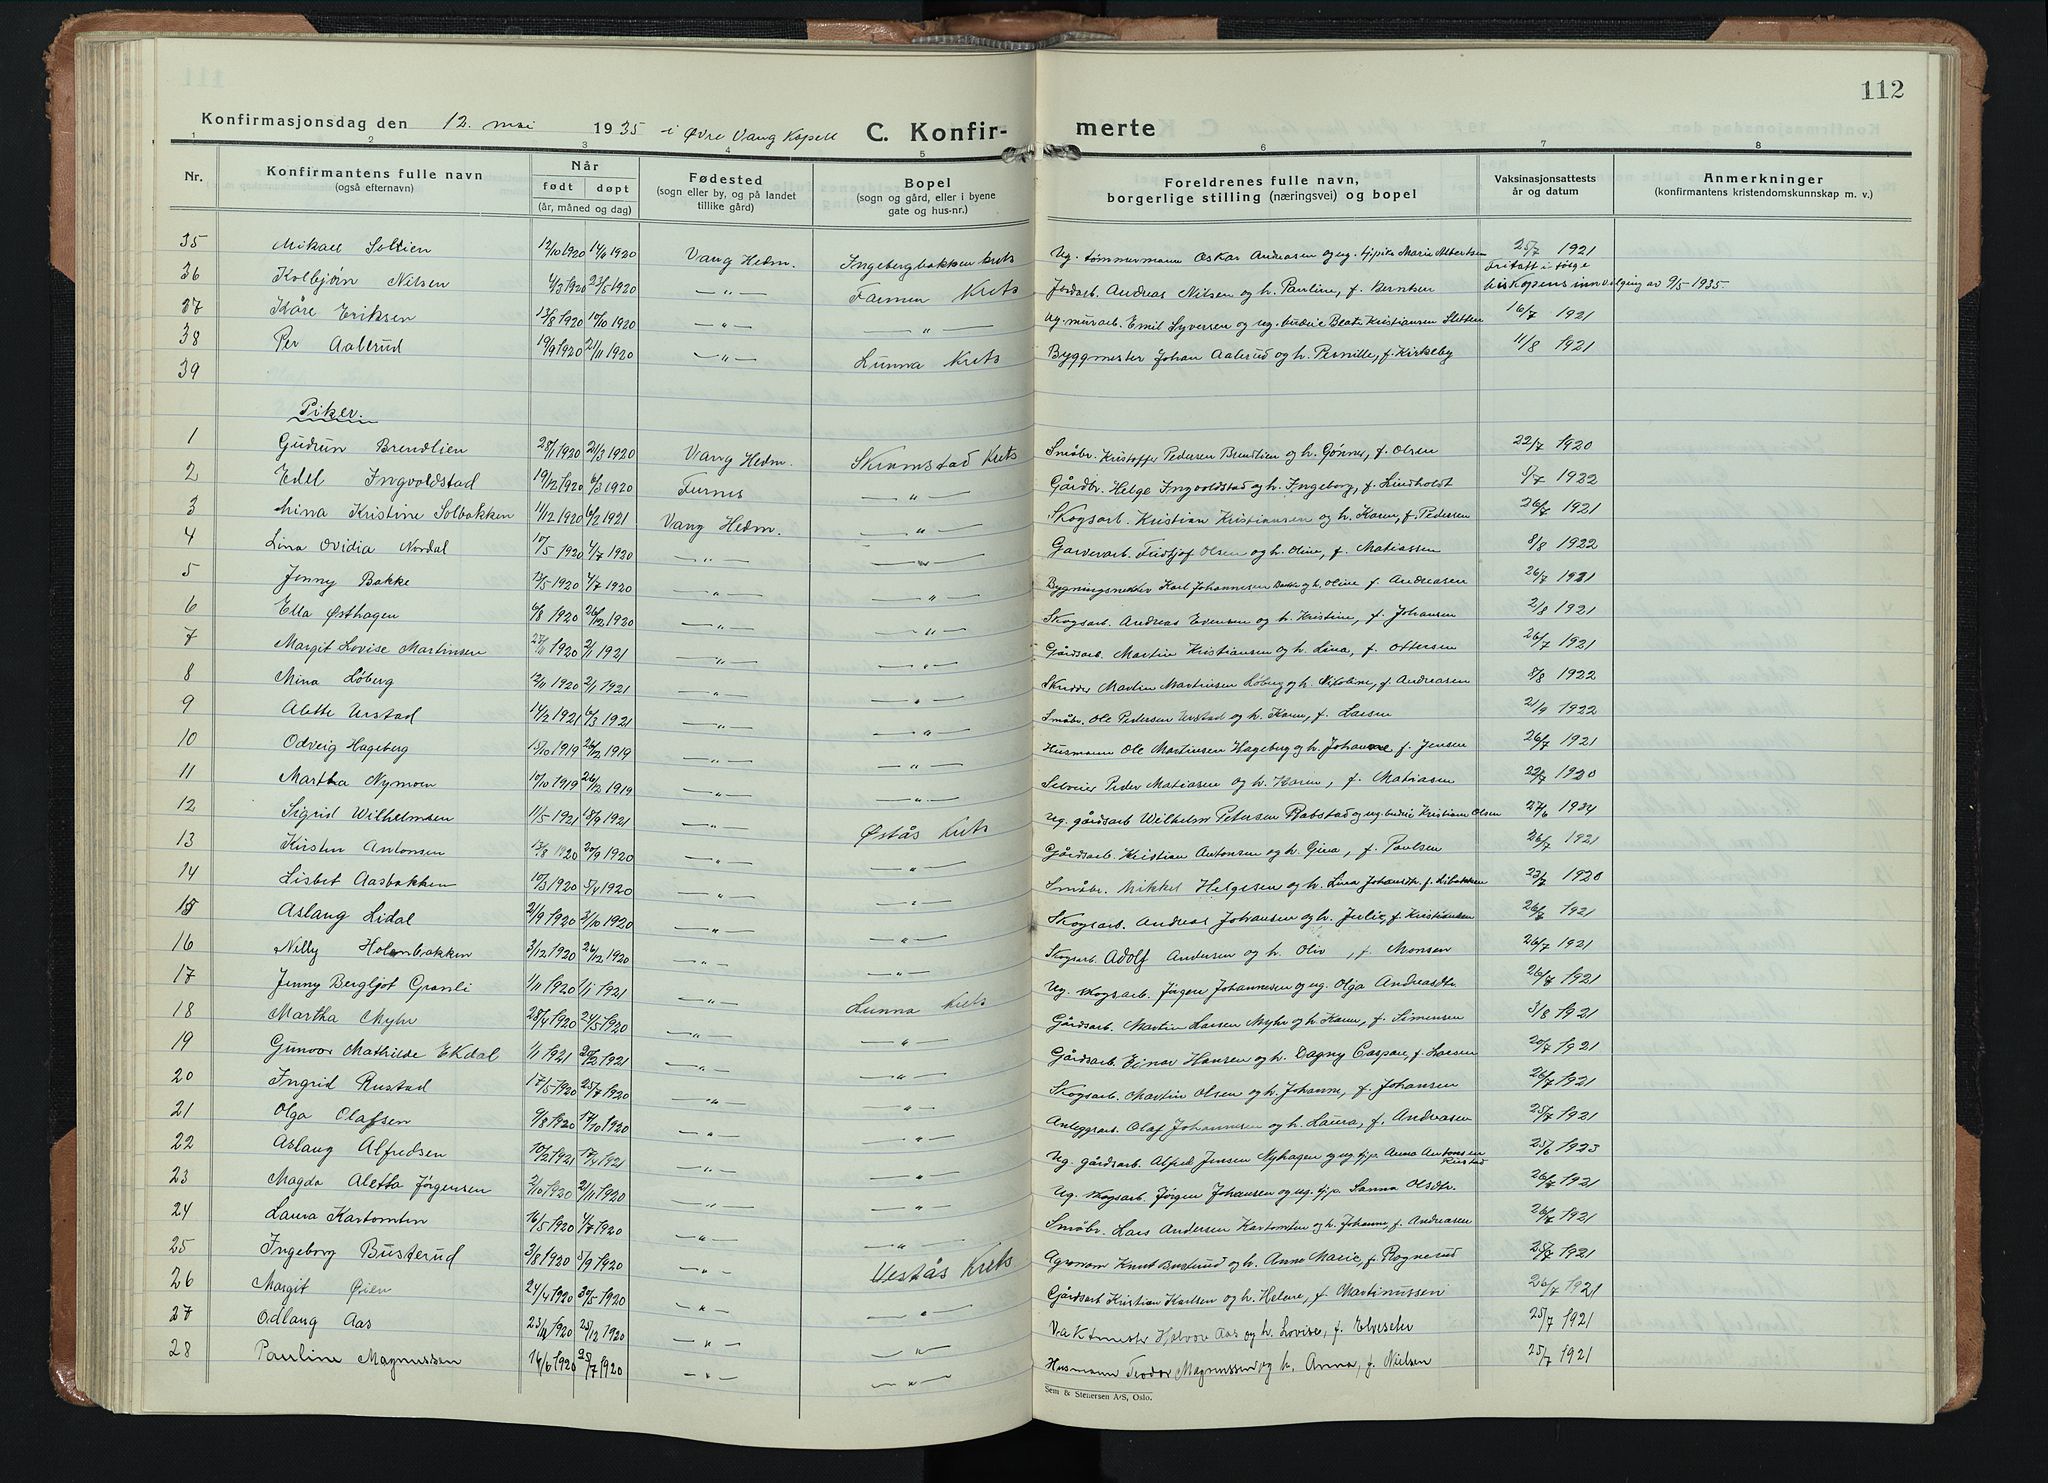 112
Konfirmasjonsdag den 12. mai 1935 i Øvre Vang Kapell C. Konfir- merte
1 2 3 4 5 6 7 8
Nr. Konfirmantens fulle navn (også efternavn) Når født døpt (år, måned og dag) Fødested (sogn eller by, og på landet tillike gård) Bopel (sogn og gård, eller i byene gate og hus-nr.) Foreldrenes fulle navn, borgerlige stilling (næringsvei) og bopel Vaksinasjonsattests år og datum Anmerkninger (konfirmantens kristendomskunnskap m. v.)
35 Mikael Sollien 12/10 1920 14/11 1920 Vang Hedm. Ingebergbakken Krets Ug. tømmermann Oskar Andreasen og ug. Marie Albertsen 25/7 1921
36 Kolbjørn Nilsen 4/3 1920 23/5 1920 —"— Farmen Krets Jordarb. Andreas Nilsen og h. Pauline, f. Berntsen Fritatt i følge biskopens innvilging av 9/5-1935.
37 Kåre Eriksen 13/8 1920 10/10 1920 —"— —"— Ug. murarb. Emil Syversen og ug. budeie Beate Kristiansen Sletten 16/7 1921
38 Per Aalerud 19/9 1920 21/11 1920 —"— Lunna Krets Byggmester Johan Aalerud og h. Pernille, f. Kirkeby 11/8 1921
39
Piker.
1 Gudrun Brendlien 28/1 1920 21/3 1920 Vang Hedm. Skrumstad Krets Småbr. Kristoffer Pedersen Brendlien og h. f. Olsen 22/7 1920
2 Edel Ingvoldstad 19/12 1920 6/3 1920 Furnes —"— Gårdbr. Helge Ingvoldstad og h. Ingeborg, f. Lindholdt 5/7 1922
3 Mina Kristine Solbakken 11/12 1920 6/2 1921 Vang Hedm. —"— Skogsarb. Kristian Kristiansen og h. Karen, f. Pedersen 26/7 1921
4 Lina Ovidia Nordal 10/5 1920 4/7 1920 —"— —"— Garverarb. Fridtjof Olsen og h. Oline, f. Matiassen 8/8 1922
5 Jenny Bakke 13/5 1920 4/7 1920 —"— —"— Karl Johannesen Bakke og h. Oline f. Andreasen 26/7 1921
6 Ella Østhagen 6/8 1920 26/12 1920 —"— —"— Skogsarb. Andreas Evensen og h. Kristine, f. Johansen 2/8 1921
7 Margit Lovise Martinsen 27/11 1920 2/1 1921 —"— —"— Gårdsarb. Martin Kristiansen og h. Lina, f. Ottersen 26/7 1921
8 Mina Løberg 12/11 1920 2/1 1921 —"— —"— Skredder Martin Martinsen Løberg og h. Nikoline, f. Andreasen 8/8 1922
9 Alette Urstad 14/2 1921 6/3 1921 —"— —"— Småbr. Ole Pedersen Urstad og h. Karen, f. Larsen 21/9 1922
10 Odveig Hageberg 15/10 1919 26/12 1919 —"— —"— Husmann Ole Martinsen Hageberg og h. Johanne f. Jensen 26/7 1921
11 Martha Nymoen 10/10 1919 26/12 1919 —"— —"— Selveier Peder Matiasen og h. Karen, f. Matiasen 22/7 1920
12 Sigrid Wilhelmsen 11/5 1921 18/9 1921 —"— Østås Krets Ug. gårdsarb. Wilhelm Petersen og ug. budeie Kristiane Olsen 27/6 1934
13 Kirsten Antonsen 13/8 1920 20/9 1920 —"— —"— Gårdsarb. Kristian Antonsen og h. Gina, f. Paulsen 26/7 1921
14 Lisbet Aasbakken 10/3 1920 5/4 1920 —"— —"— Småbr. Mikkel Helgesen og h. Lina Johansdtr. f. Libakken 23/7 1920
15 Aslaug Lidal 2/9 1920 3/10 1920 —"— —"— Skogsarb. Andreas Johansen og h. Julie, f. Kristiansen 26/8 1921
16 Nelly Holenbakken 3/12 1920 26/12 1920 —"— —"— Skogsarb. Adolf Andersen og h. Oliv, f. Monsen 26/7 1921
17 Jenny Bergljot Granli 1/11 1920 1/1 1921 —"— Lunna Krets Ug. skogsarb. Jørgen Johannesen og ug. Olga Andreasdtr. 26/7 1921
18 Martha Myhr 28/4 1920 24/5 1920 —"— —"— Gårdsarb. Martin Larsen Myhr og h. Karen, f. Simensen 3/8 1921
19 Gunvor Mathilde Ekdal 1/1 1921 20/2 1921 —"— —"— Gårdsarb. Einar Hansen og h. Dagny Caspara, f. Larsen 20/7 1921
20 Ingrid Rustad 17/5 1920 25/7 1920 —"— —"— Skogsarb. Martin Olsen og h. Johanne, f. Johansen 26/7 1921
21 Olga Olafsen 9/8 1920 17/10 1920 —"— —"— Anleggsarb. Olaf Johannesen og h. Laura, f. Andreasen 25/7 1921
22 Aslaug Alfredsen 10/2 1921 17/4 1921 —"— —"— Ug. gårdsarb. Alfred Jensen Nyhagen og ug. tjp. Anna Antonsen Rustad 25/6 1923
23 Magda Aletta Jørgensen 2/10 1920 21/11 1920 —"— —"— Ug. skogsarb. Jørgen Johansen og ug. tjp. Sanna Olsdtr. 26/7 1921
24 Laura Kartomten 16/5 1920 4/7 1920 —"— —"— Småbr. Lars Andersen Kartomten og h. Johanne, f. Andreasen 26/7 1921
25 Ingeborg Busterud 3/8 1920 5/9 1920 —"— Vestås Krets Agronom Knut Busterud og h. Anne Marie, f. Rognerud 25/7 1921
26 Margit Øien 24/4 1920 30/5 1920 —"— —"— Gårdsarb Kristian Karlsen og h. Helene, f. Martinussen 26/7 1921
27 Odlaug Aas 23/11 1920 25/12 1920 —"— —"— Vaktmester Halvor Aas og h. Lovise, f. Elveseter 25/7 1921
28 Pauline Magnussen 14/6 1920 25/7 1920 —"— —"— Husmann Teodor Magnussen og h. Anna, f. Nielsen 25/7 1921
Sem & Stenersen A/S, Oslo.